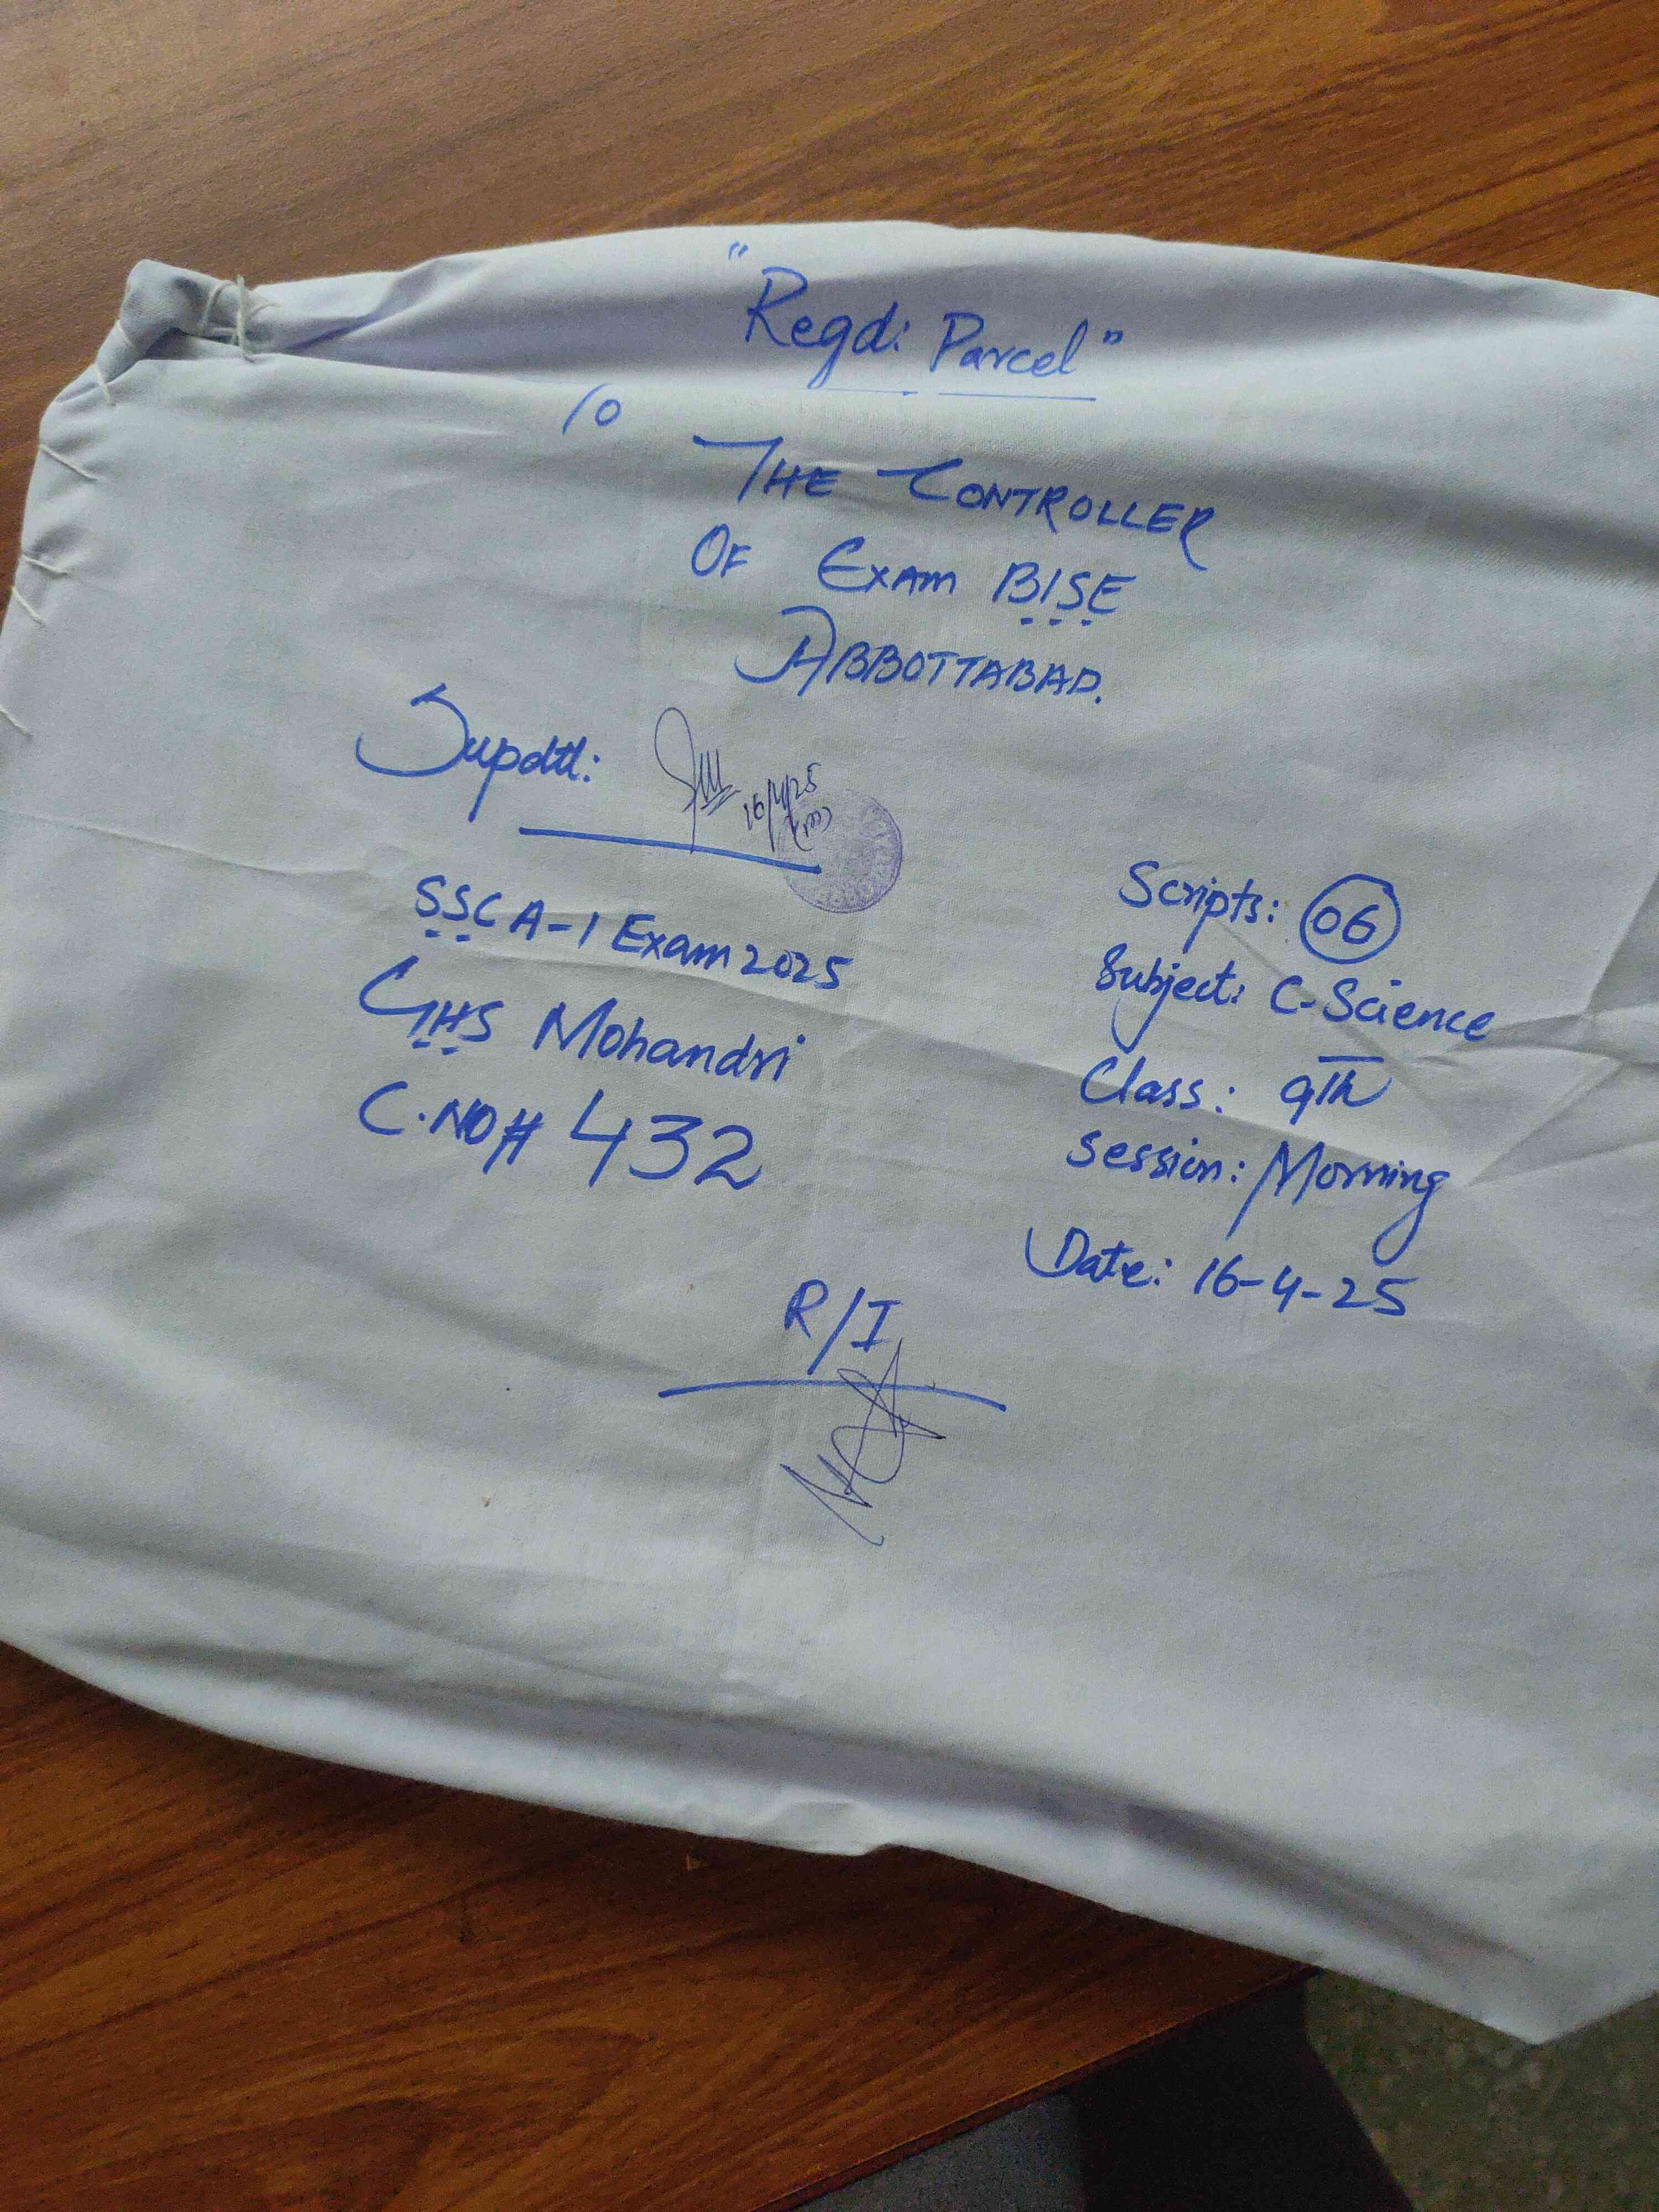 "Regd: Parcel"
To
THE CONTROLLER
OF EXAM BISE
ABBOTTABAD.
Supdtt:
16/4/25
(M)
SSC A-1 Exam 2025
GHS Mohandri
C.NO# 432
Scripts: 06
Subject: C-Science
Class: 9th
Session: Morning
Date: 16-4-25
R/I